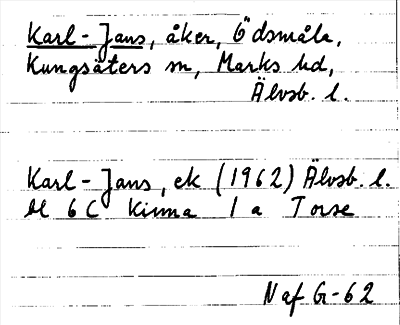 Karl-Jans, åker, Ödsmåla,
Kungsäters sn, Marks hd,
Älvsb. l.
Karl-Jans, ek (1962) Älvsb. l.
bl 6 C Kinna 1 a Torse
N af G-62